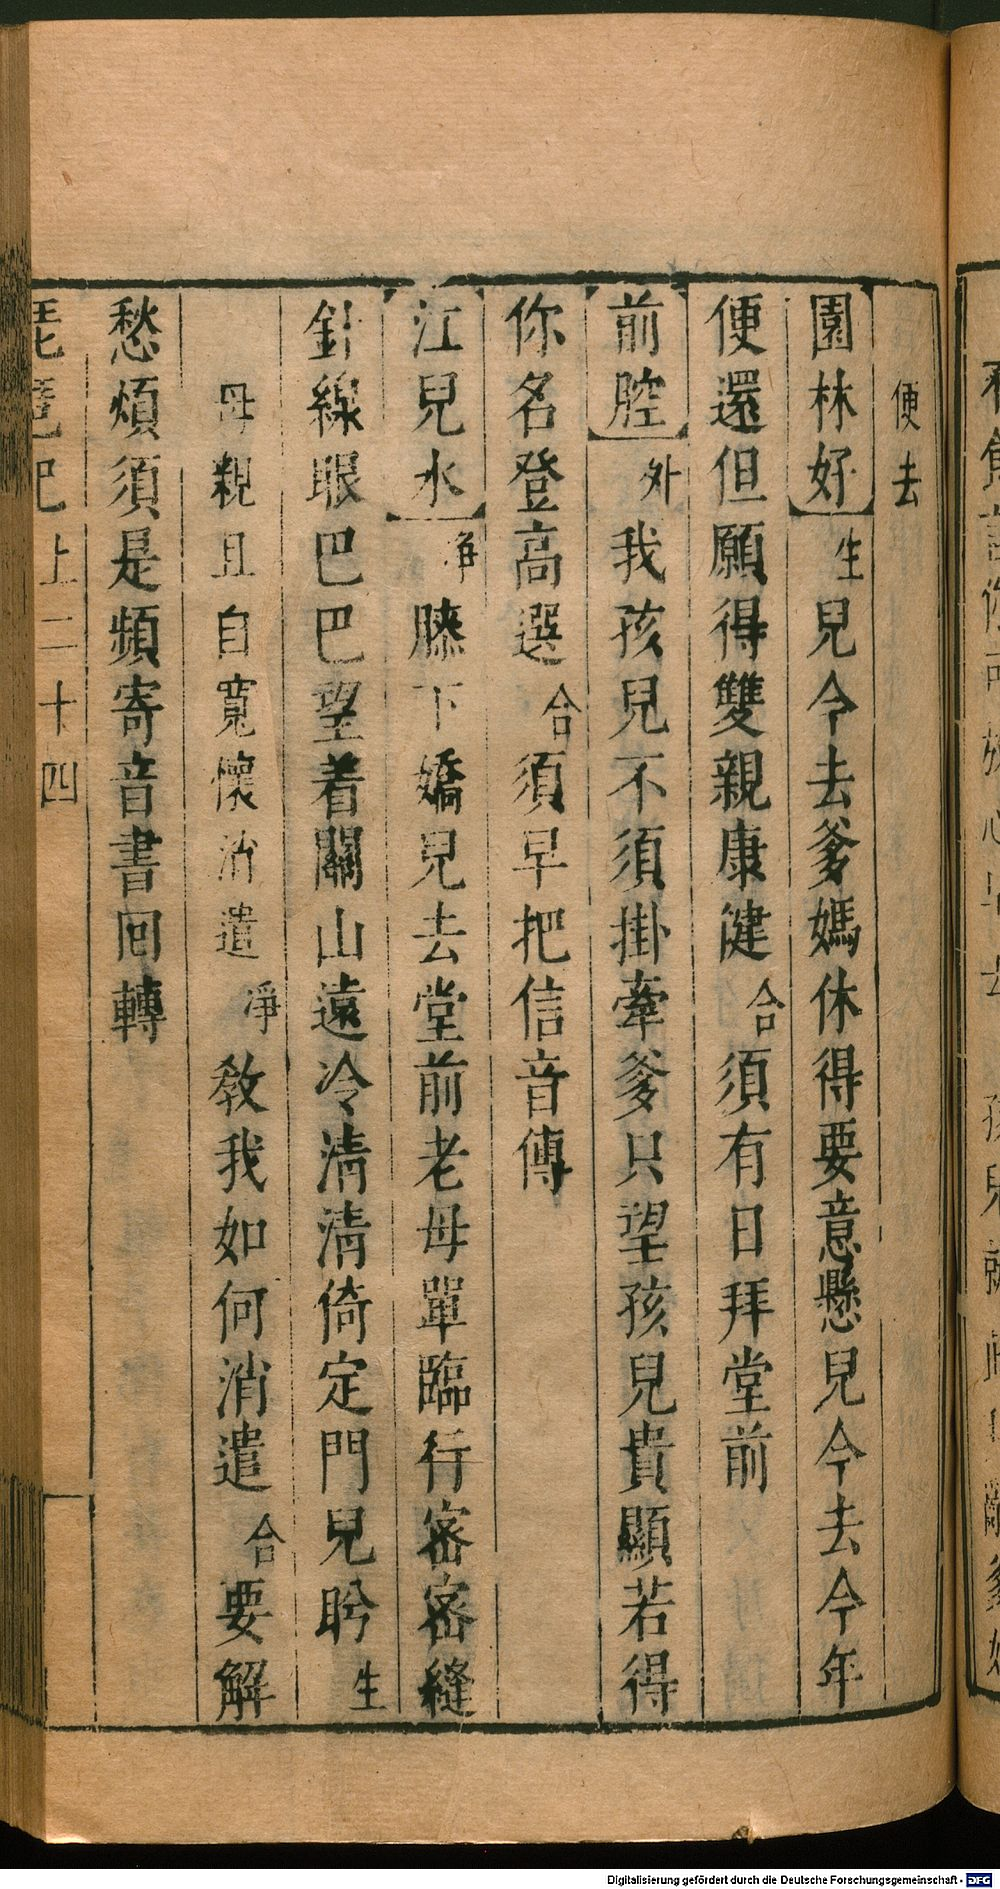 便去
園林好 生 兒今去爹媽休得要意懸兒今去今年
便還但願得雙親康健 合 須有日拜堂前
前腔 外 我孩兒不須掛牽爹只望孩兒貴顯若得
你名登高選 合 須早把信音傳
江兒水 净 膝下嬌兒去堂前老母單臨行密密縫
針線眼巴巴望着關山遠冷清清倚定門兒盼 生
母親且自寬懷消遣 净 教我如何消遣 合 要解
愁煩須是頻寄音書回轉
琵琶記 上二十四
Digitalisierung gefördert durch die Deutsche Forschungsgemeinschaft - DFG